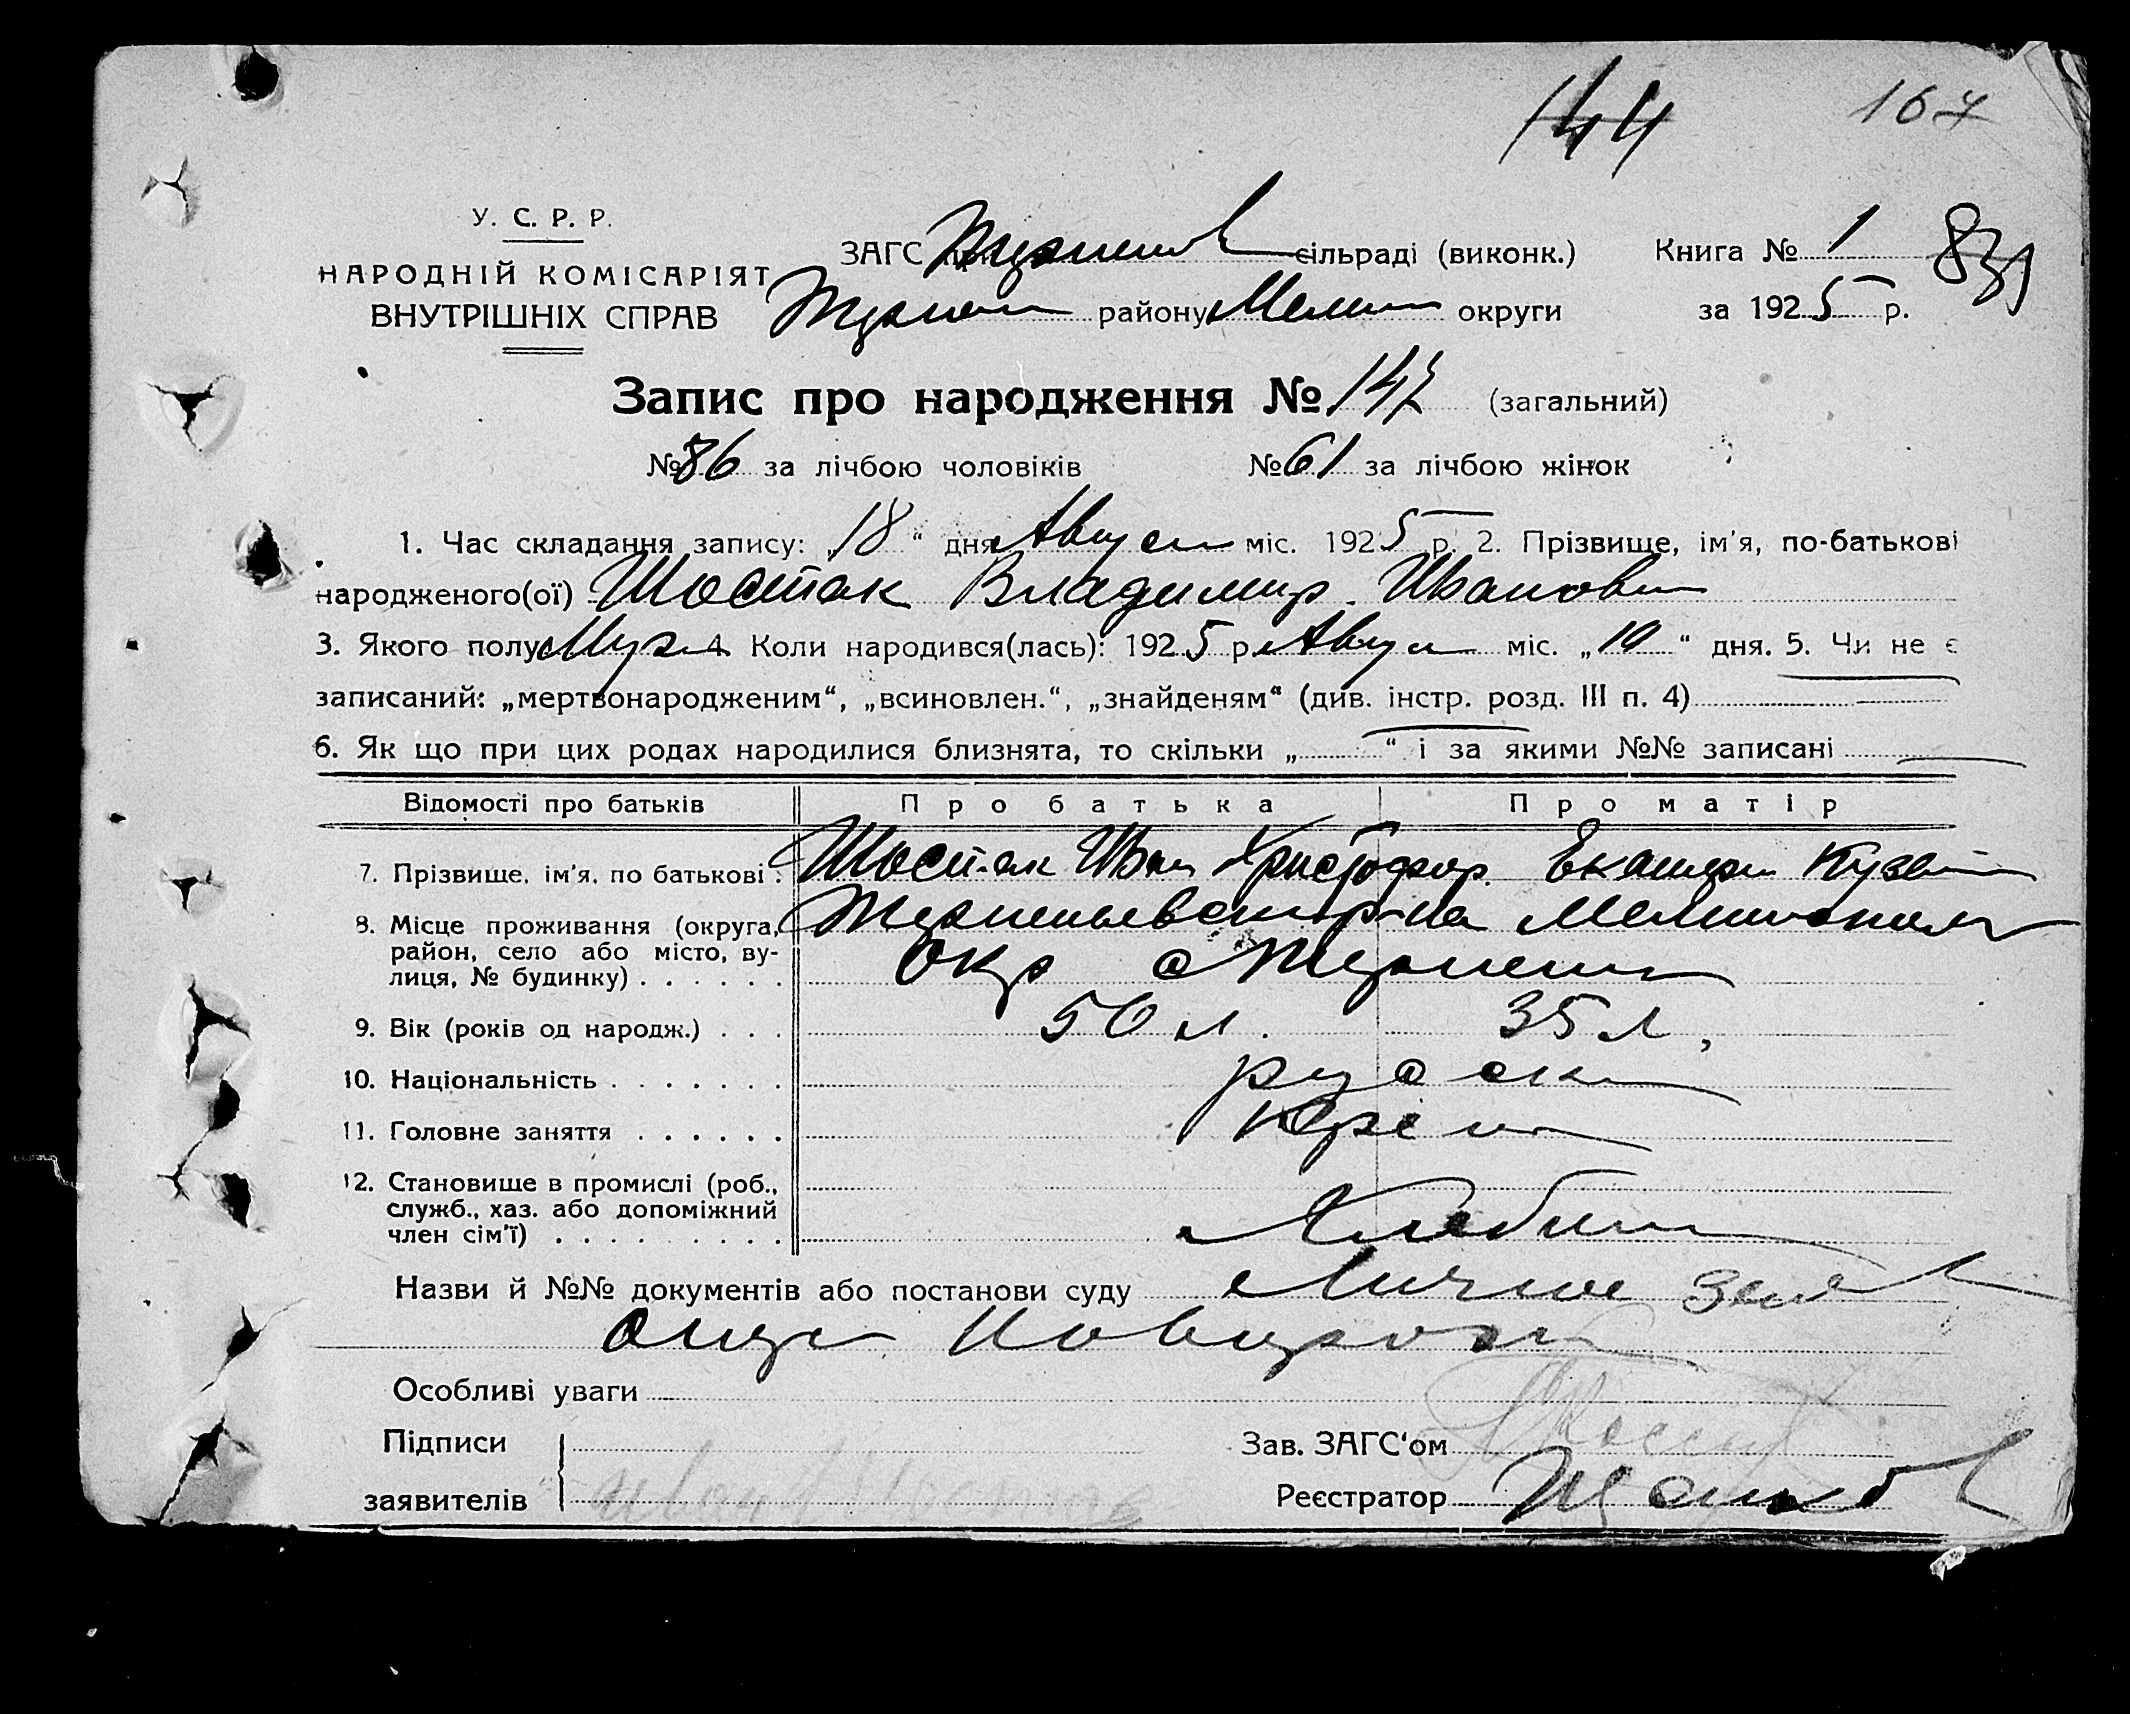 144 167
У. С. Р. Р.
НАРОДНІЙ КОМІСАРІЯТ
ВНУТРІШНІХ СПРАВ
ЗАГС при сільраді (виконк.) Книга № 1
району Мелит округи за 1925 р.
Запис про народження № 147 (загальний)
№ 86 за лічбою чоловіків № 61 за лічбою жінок
1. Час складання запису: „18“ дня Август міс. 1925 р. 2. Прізвище, ім'я, по-батькові
народженого(ої) Шостак Владимир Иванов
3. Якого полу Муж 4. Коли народився(лась): 1925 р. Авгус міс. „10“ дня. 5. Чи не є
записаний: „мертвонародженим“, „всиновлен.“, „знайденям“ (див. інстр. розд. III п. 4)
6. Як що при цих родах народилися близнята, то скільки „ “ і за якими №№ записані
Відомості про батьків Про батька Про матір
7. Прізвище, ім'я, по батькові. Шостак Иван Христофор. Екатери Кузьм
8. Місце проживання (округа, р-на Мелитопол
район, село або місто, ву- Окр с
лиця, № будинку) . . . . . .
9. Вік (років од народж.) . . . 50 л. 35 л.
10. Національність . . . . . . . русск
11. Головне заняття . . . . . .
12. Становище в промислі (роб.,
служб., хаз. або допоміжний
член сім'ї) . . . . . . . . . Хлебп
Назви й №№ документів або постанови суду Личное заяв
отца
Особливі уваги
Підписи Зав. ЗАГС'ом
заявителів Реєстратор